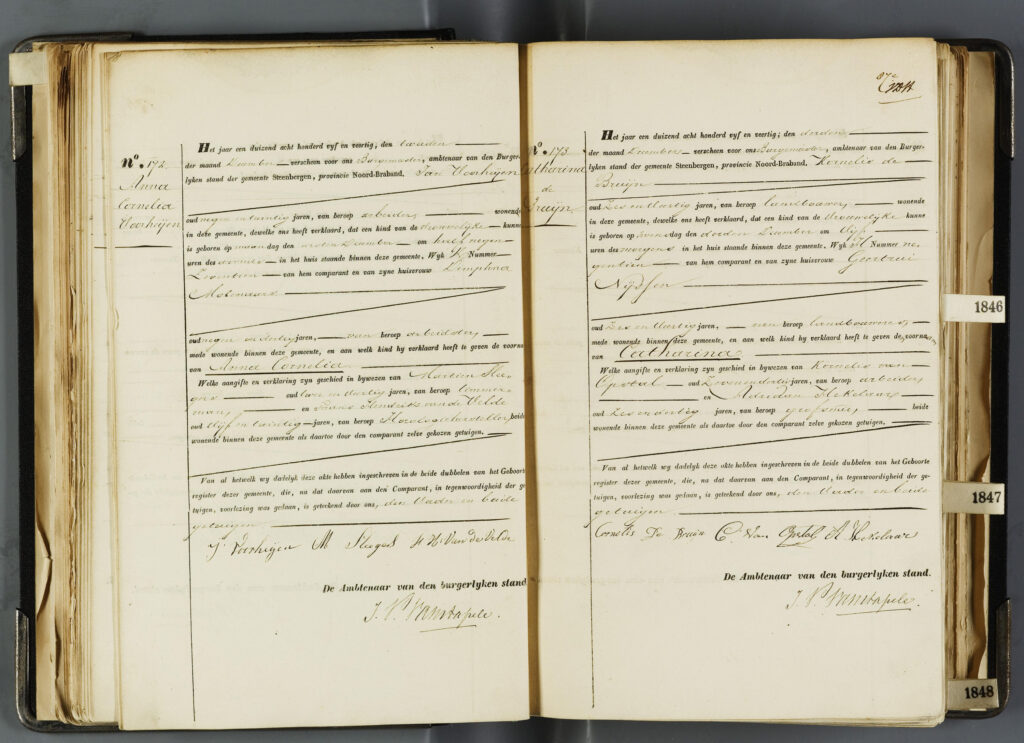 No. 172
Anna
Cornelia
Voorheijen
Het jaar een duizend acht honderd vyf en veertig; den tweeden
der maand December verscheen voor ons Burgemeester, ambtenaar van den Burger-
lyken stand der gemeente Steenbergen, provincie Noord-Braband, Jan Voorheijen
oud negen en twintig jaren, van beroep arbeider wonende
in deze gemeente, dewelke ons heeft verklaard, dat een kind van de vrouwelijke kunne
is geboren op maandag den eersten December om half negen
uren des avonds in het huis staande binnen deze gemeente, Wyk K Nummer
van hem comparant en van zyne huisvrouw Dimphna
Molenaars
oud negen en dertig jaren, van beroep arbeidster
mede wonende binnen deze gemeente, en aan welk kind hy verklaard heeft te geven de voorna
van Anna Cornelia
Welke aangifte en verklaring zyn geschied in bywezen van Martien Ste-
gers oud twee en veertig jaren, van beroep
en Frans Hendrik van de Velde
oud vijf en twintig jaren, van beroep beide
wonende binnen deze gemeente als daartoe door den comparant zelve gekozen getuigen.
Van al hetwelk wy dadelyk deze akte hebben ingeschreven in de beide dubbelen van het Geboorte
register dezer gemeente, die, na dat daarvan aan den Comparant, in tegenwoordigheid der ge-
tuigen, voorlezing was gedaan, is geteekend door ons, den Vader en beide
getuigen
J Voorheijen M Stegers H Van de Velde
De Ambtenaar van den burgerlyken stand
J. P. Vanstapele.
87e
No. 173
Catharina
de
Bruijn
Het jaar een duizend acht honderd vyf en veertig; den derden
der maand December verscheen voor ons Burgemeester, ambtenaar van den Burger-
lyken stand der gemeente Steenbergen, provincie Noord-Braband, Kornelis de
Bruijn
oud zes en veertig jaren, van beroep landbouwer wonende
in deze gemeente, dewelke ons heeft verklaard, dat een kind van de vrouwelijke kunne
is geboren op woensdag den derden December om vijf
uren des morgens in het huis staande binnen deze gemeente, Wyk H Nummer ne-
gentien van hem comparant en van zyne huisvrouw Geertrui
Nijssen
oud zes en veertig jaren, van beroep landbouwster
mede wonende binnen deze gemeente, en aan welk kind hy verklaard heeft te geven de voornam
van Catharina
Welke aangifte en verklaring zyn geschied in bywezen van Kornelis van
Opstal oud zeven en dertig jaren, van beroep arbeider
en Adriaan Hekelaar
oud zes en dertig jaren, van beroep beide
wonende binnen deze gemeente als daartoe door den comparant zelve gekozen getuigen.
Van al hetwelk wy dadelyk deze akte hebben ingeschreven in de beide dubbelen van het Geboorte
register dezer gemeente, die, na dat daarvan aan den Comparant, in tegenwoordigheid der ge-
tuigen, voorlezing was gedaan, is geteekend door ons, den Vader en beide
getuigen
Cornelis De Bruin C. Van Opstal A Hekelaar
De Ambtenaar van den burgerlyken stand.
J. P. Vanstapele.
1846
1847
1848